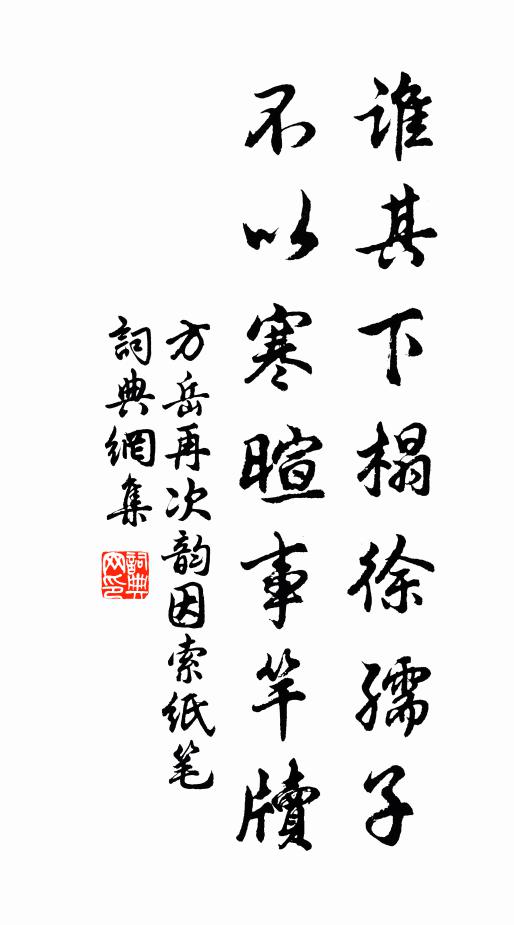 誰其下榻徐孺子
不以寒暄事竿牘
方岳再次韵因索紙笔
詞典網集
詞典
网印